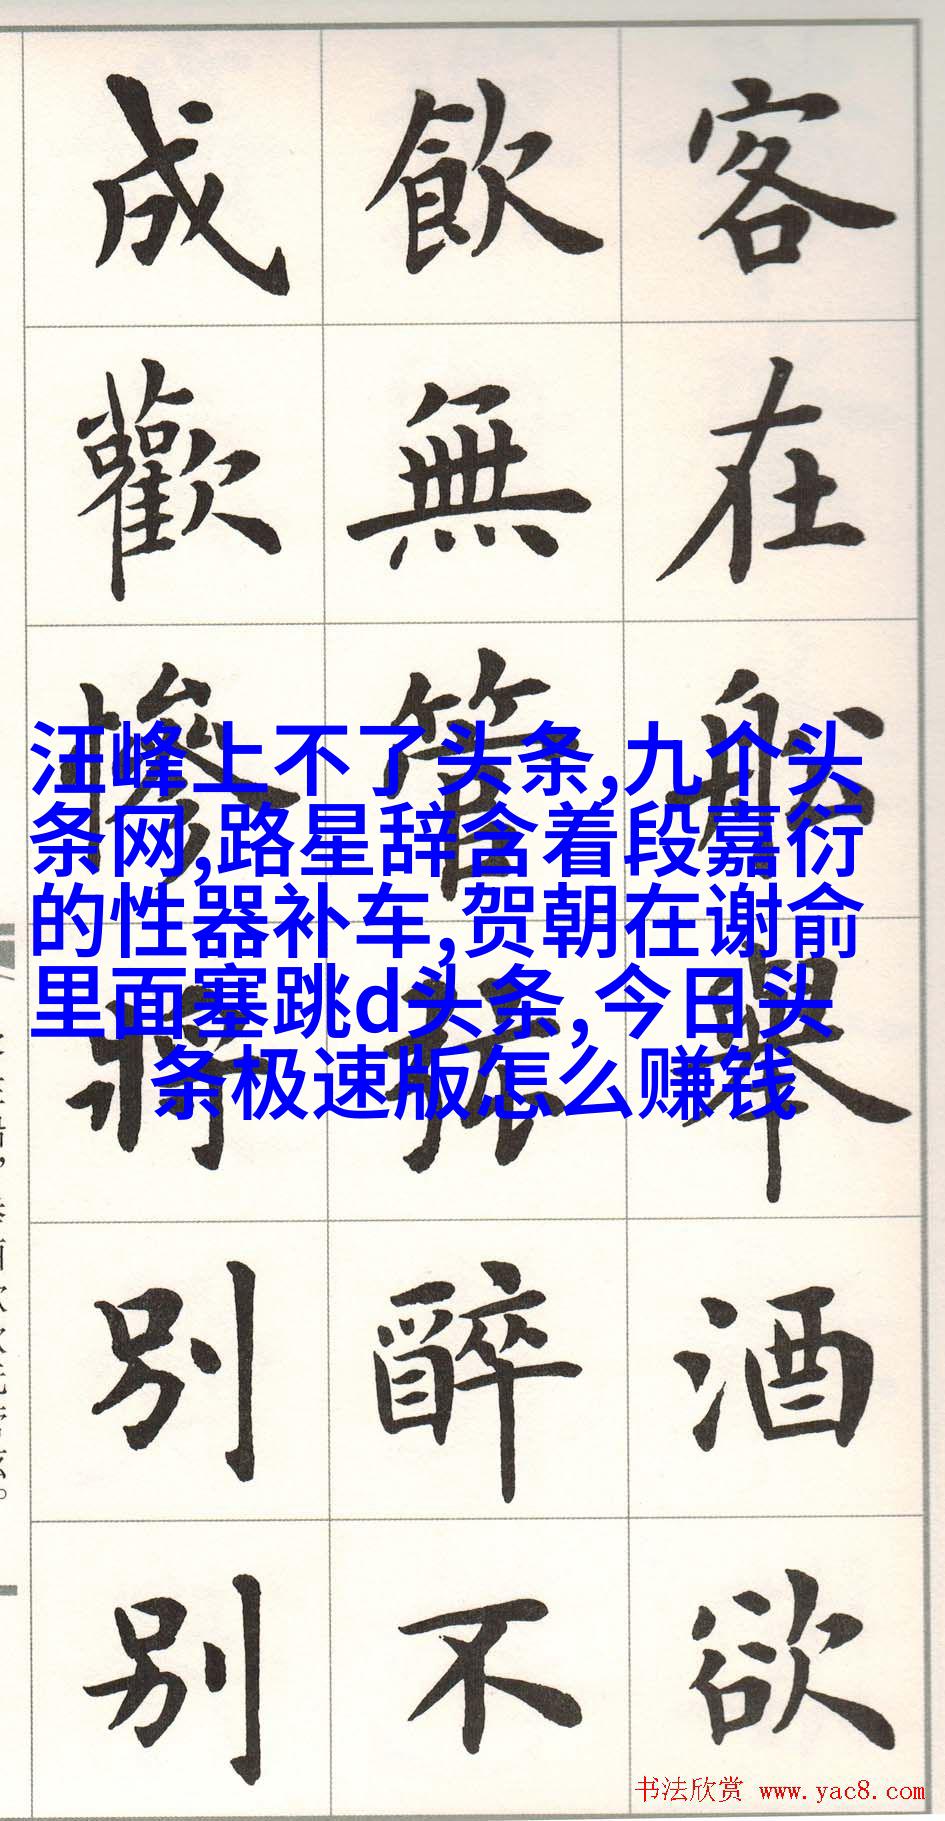 客在船舉酒欲
飲無管絃醉不
成歡慘將別別
汪峰上不了头条,九个头
条网,路星辞含着段嘉衍
的性器补车,贺朝在谢俞
里面塞跳d头条,今日头
条极速版怎么赚钱
书法欣赏 www.yac8.com